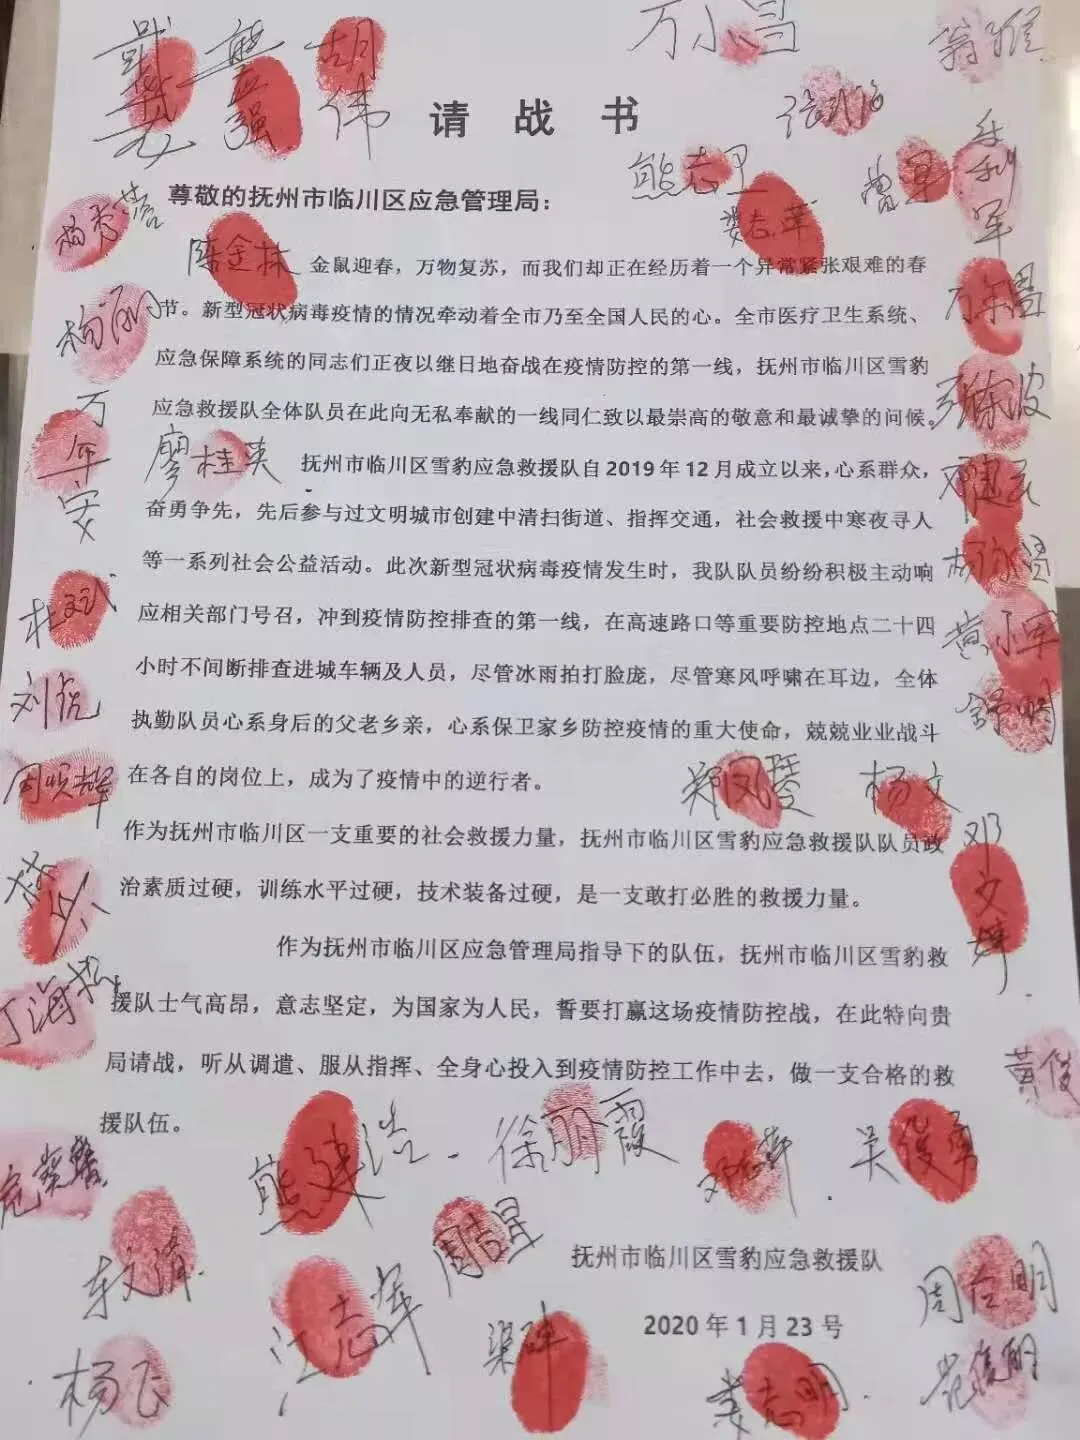 胡伟
万小昌
请 战 书
熊志卫
曾军
尊敬的抚州市临川区应急管理局：
杨秀蓉
陈金妹
金鼠迎春，万物复苏，而我们却正在经历着一个异常紧张艰难的春
节。新型冠状病毒疫情的情况牵动着全市乃至全国人民的心。全市医疗卫生系统、
应急保障系统的同志们正夜以继日地奋战在疫情防控的第一线，抚州市临川区雪豹
应急救援队全体队员在此向无私奉献的一线同仁致以最崇高的敬意和最诚挚的问候。
万年安
廖桂英
抚州市临川区雪豹应急救援队自 2019 年 12 月成立以来，心系群众，
奋勇争先，先后参与过文明城市创建中清扫街道、指挥交通，社会救援中寒夜寻人
等一系列社会公益活动。此次新型冠状病毒疫情发生时，我队队员纷纷积极主动响
应相关部门号召，冲到疫情防控排查的第一线，在高速路口等重要防控地点二十四
小时不间断排查进城车辆及人员，尽管冰雨拍打脸庞，尽管寒风呼啸在耳边，全体
执勤队员心系身后的父老乡亲，心系保卫家乡防控疫情的重大使命，兢兢业业战斗
在各自的岗位上，成为了疫情中的逆行者。
黄小军
舒明
郑凤琴
杨文
作为抚州市临川区一支重要的社会救援力量，抚州市临川区雪豹应急救援队队员政
治素质过硬，训练水平过硬，技术装备过硬，是一支敢打必胜的救援力量。
邓文辉
作为抚州市临川区应急管理局指导下的队伍，抚州市临川区雪豹救
援队士气高昂，意志坚定，为国家为人民，誓要打赢这场疫情防控战，在此特向贵
局请战，听从调遣、服从指挥、全身心投入到疫情防控工作中去，做一支合格的救
援队伍。
黄俊
熊建浩
徐丽霞
吴俊勇
周吉星
抚州市临川区雪豹应急救援队
2020 年 1 月 23 号
江志辉
杨飞
娄志明